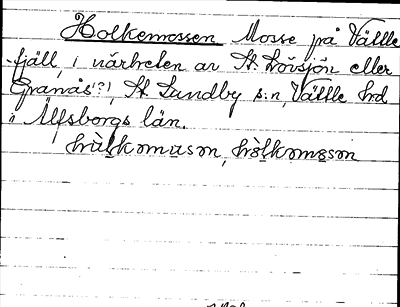 Holkemossen Mosse på Vättle
-fjäll, i närheten av St. Lövsjön eller
Granås(?), St. Lundby s:n, Vättle hd
i Älfsborgs län.